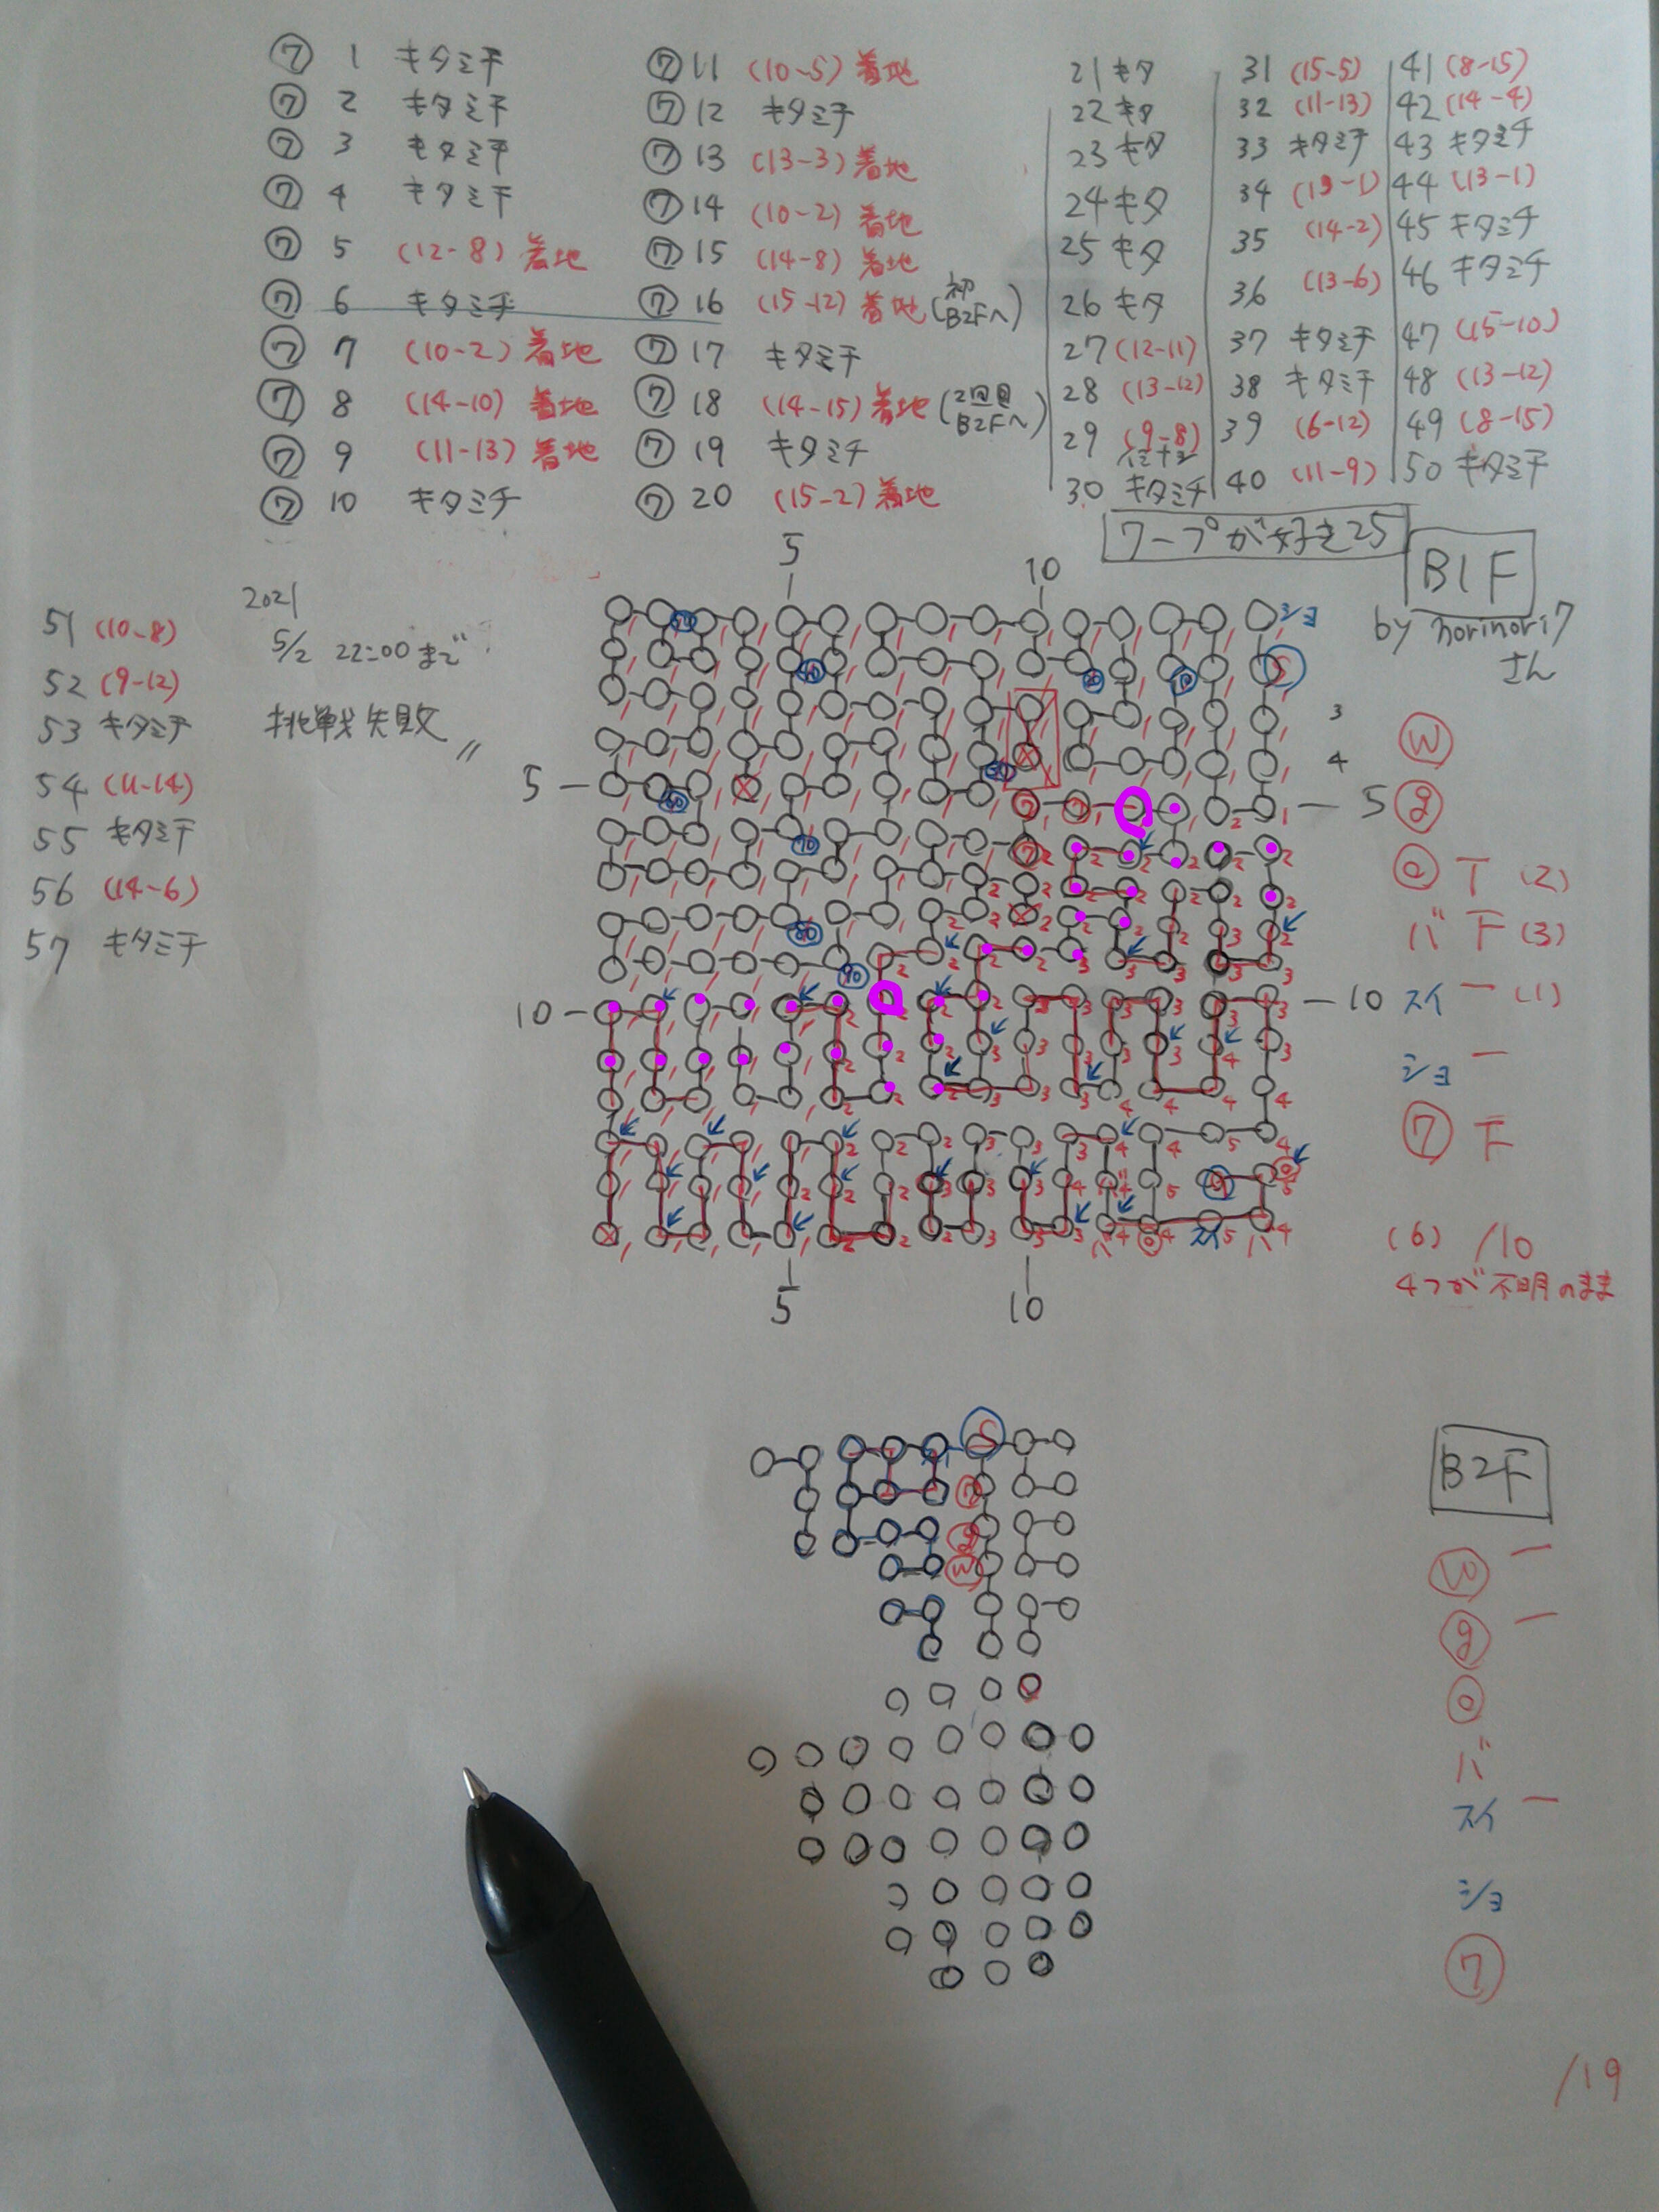 ⑦ 1 キタミチ
⑦ 2 キタミチ
⑦ 3 キタミチ
⑦ 4 キタミチ
⑦ 5 (12-8) 着地
⑦ 6 キタミチ
⑦ 7 (10-2) 着地
⑦ 8 (14-10) 着地
⑦ 9 (11-13) 着地
⑦ 10 キタミチ
⑦ 11 (10-5) 着地
⑦ 12 キタミチ
⑦ 13 (13-3) 着地
⑦ 14 (10-2) 着地
⑦ 15 (14-8) 着地
⑦ 16 (15-12) 着地 (初
B2Fへ)
⑦ 17 キタミチ
⑦ 18 (14-15) 着地 (2回目
B2Fへ)
⑦ 19 キタミチ
⑦ 20 (15-2) 着地
21 キタ
22 キタ
23 キタ
24 キタ
25 キタ
26 キタ
27 (12-11)
28 (13-12)
29 (9-8)
30 キタミチ
31 (15-5)
32 (11-13)
33 キタミチ
34 (13-1)
35 (14-2)
36 (13-6)
37 キタミチ
38 キタミチ
39 (6-12)
40 (11-9)
41 (8-15)
42 (14-4)
43 キタミチ
44 (13-1)
45 キタミチ
46 キタミチ
47 (15-10)
48 (13-12)
49 (8-15)
50 キタミチ
ワープが好き25
B1F
by norinori7
さん
51 (10-8)
52 (9-12)
53 キタミチ
54 (11-14)
55 キタミチ
56 (14-6)
57 キタミチ
2021
5/2 22:00まで
挑戦失敗
5
10
ショ
S
3
4
5
5
10
10
5
10
Ⓦ
ⓖ
ⓞ T (2)
バ 下 (3)
スイ 一 (1)
ショ 一
⑦ 下
(6) /10
4つが不明のまま
S
⑦
ⓖ
Ⓦ
B2F
Ⓦ 一
ⓖ 一
ⓞ
バ
スイ 一
ショ
⑦
/19